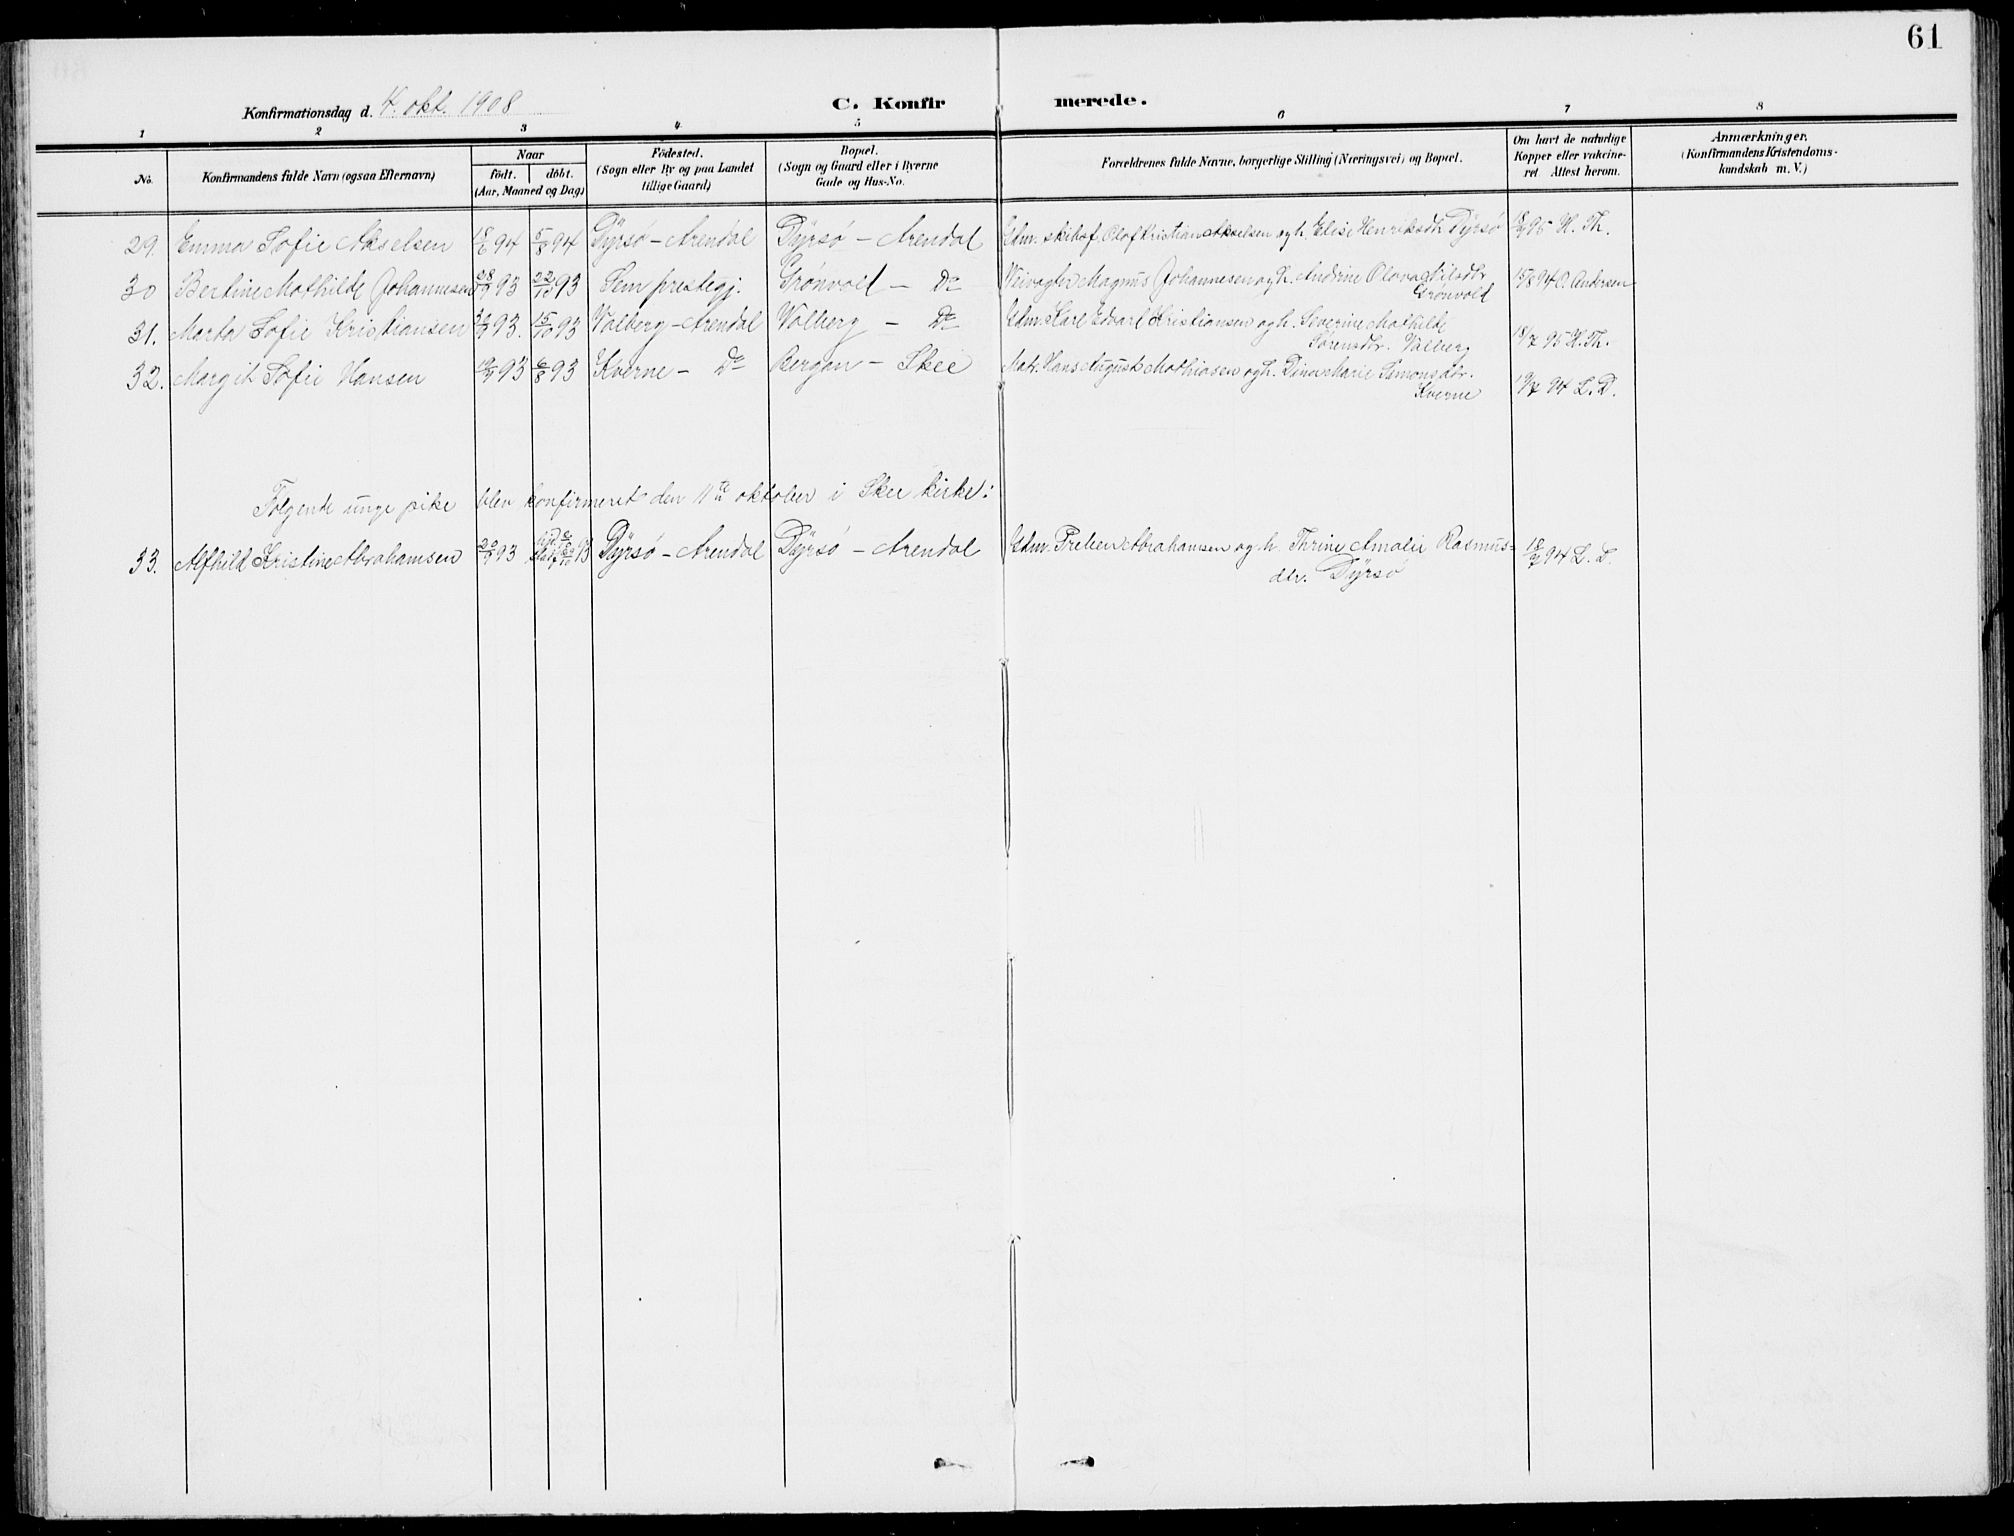 61
Konfirmationsdag d. 4. okt. 1908
C. Konfir merede.
1 2 3 4 5 6 7 8
No.
Konfirmandens fulde Navn (ogsaa Efternavn)
Naar
födt. döbt.
(Aar, Maaned og Dag)
Födested.
(Sogn eller By og paa Landet
tillige Gaard)
Bopæl.
(Sogn og Gaard eller i Byerne
Gade og Hus-No.
Forældrenes fulde Navne, borgerlige Stilling (Næringsvei) og Bopæl.
Om havt de naturlige
Kopper eller vakcine-
ret Attest herom.
Anmærkninger.
(Konfirmandens Kristendoms-
kundskab m. V.)
29. Emma Sofie Akselsen 94 5/8 94 Dyrsø - Arendal Dyrsø - Arendal Gdm. Olaf Kristian Akselsen og h. Elise Henriksdtr Dyrsø 95 H. Th.
30 Bertine Mathilde Johannesen 93 22/10 93 Sem prestegj. Grønvold - Do Veivogter Magnus Johannesen og h. Andrine Olava Nilsdtr.
Grønvold 15/8 94 O. Andersen
31. Marta Sofie Kristiansen 93. 15/10 93 Valberg - Arendal Valberg - Do Gdm. Karl Edvarl Kristiansen og h. Severine Mathilde
Sørensdtr. Valberg 18/7 95 H. Th.
32. Margit Sofie Hansen 93 6/8 93 Kverne - Do Bergan - Skee Matr. Hans August Mathiasen og h. Dina Marie Simonsdtr.
Kverne 19/7 94 L. D.
Følgende unge pike blev konfirmeret den 11te oktober i Skee kirke:
33. Alfhild Kristine Abrahamsen 93 93 Dyrsø - Arendal Dyrsø - Arendal Gdm. Preben Abrahamsen og h. Thrine Amalie Rasmus-
dtr. Dyrsø 94 L. D.